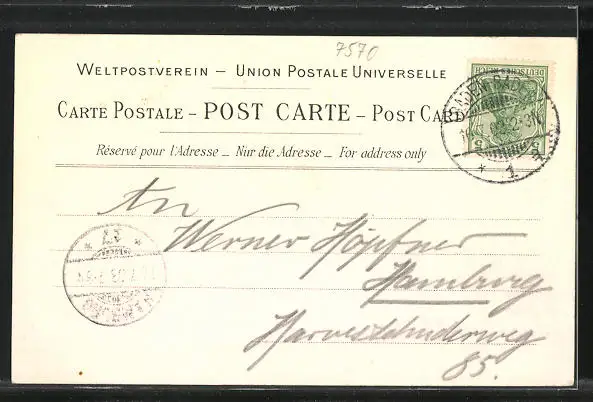 7570
WELTPOSTVEREIN – UNION POSTALE UNIVERSELLE
CARTE POSTALE – POST CARTE – POST CARD
Réservé pour l'Adresse – Nur die Adresse – For address only
DEUTSCHES REICH
5 5
BADEN-BADEN
* 1
An
Werner Höpfner
Hamburg
Harvestehuderweg
85.